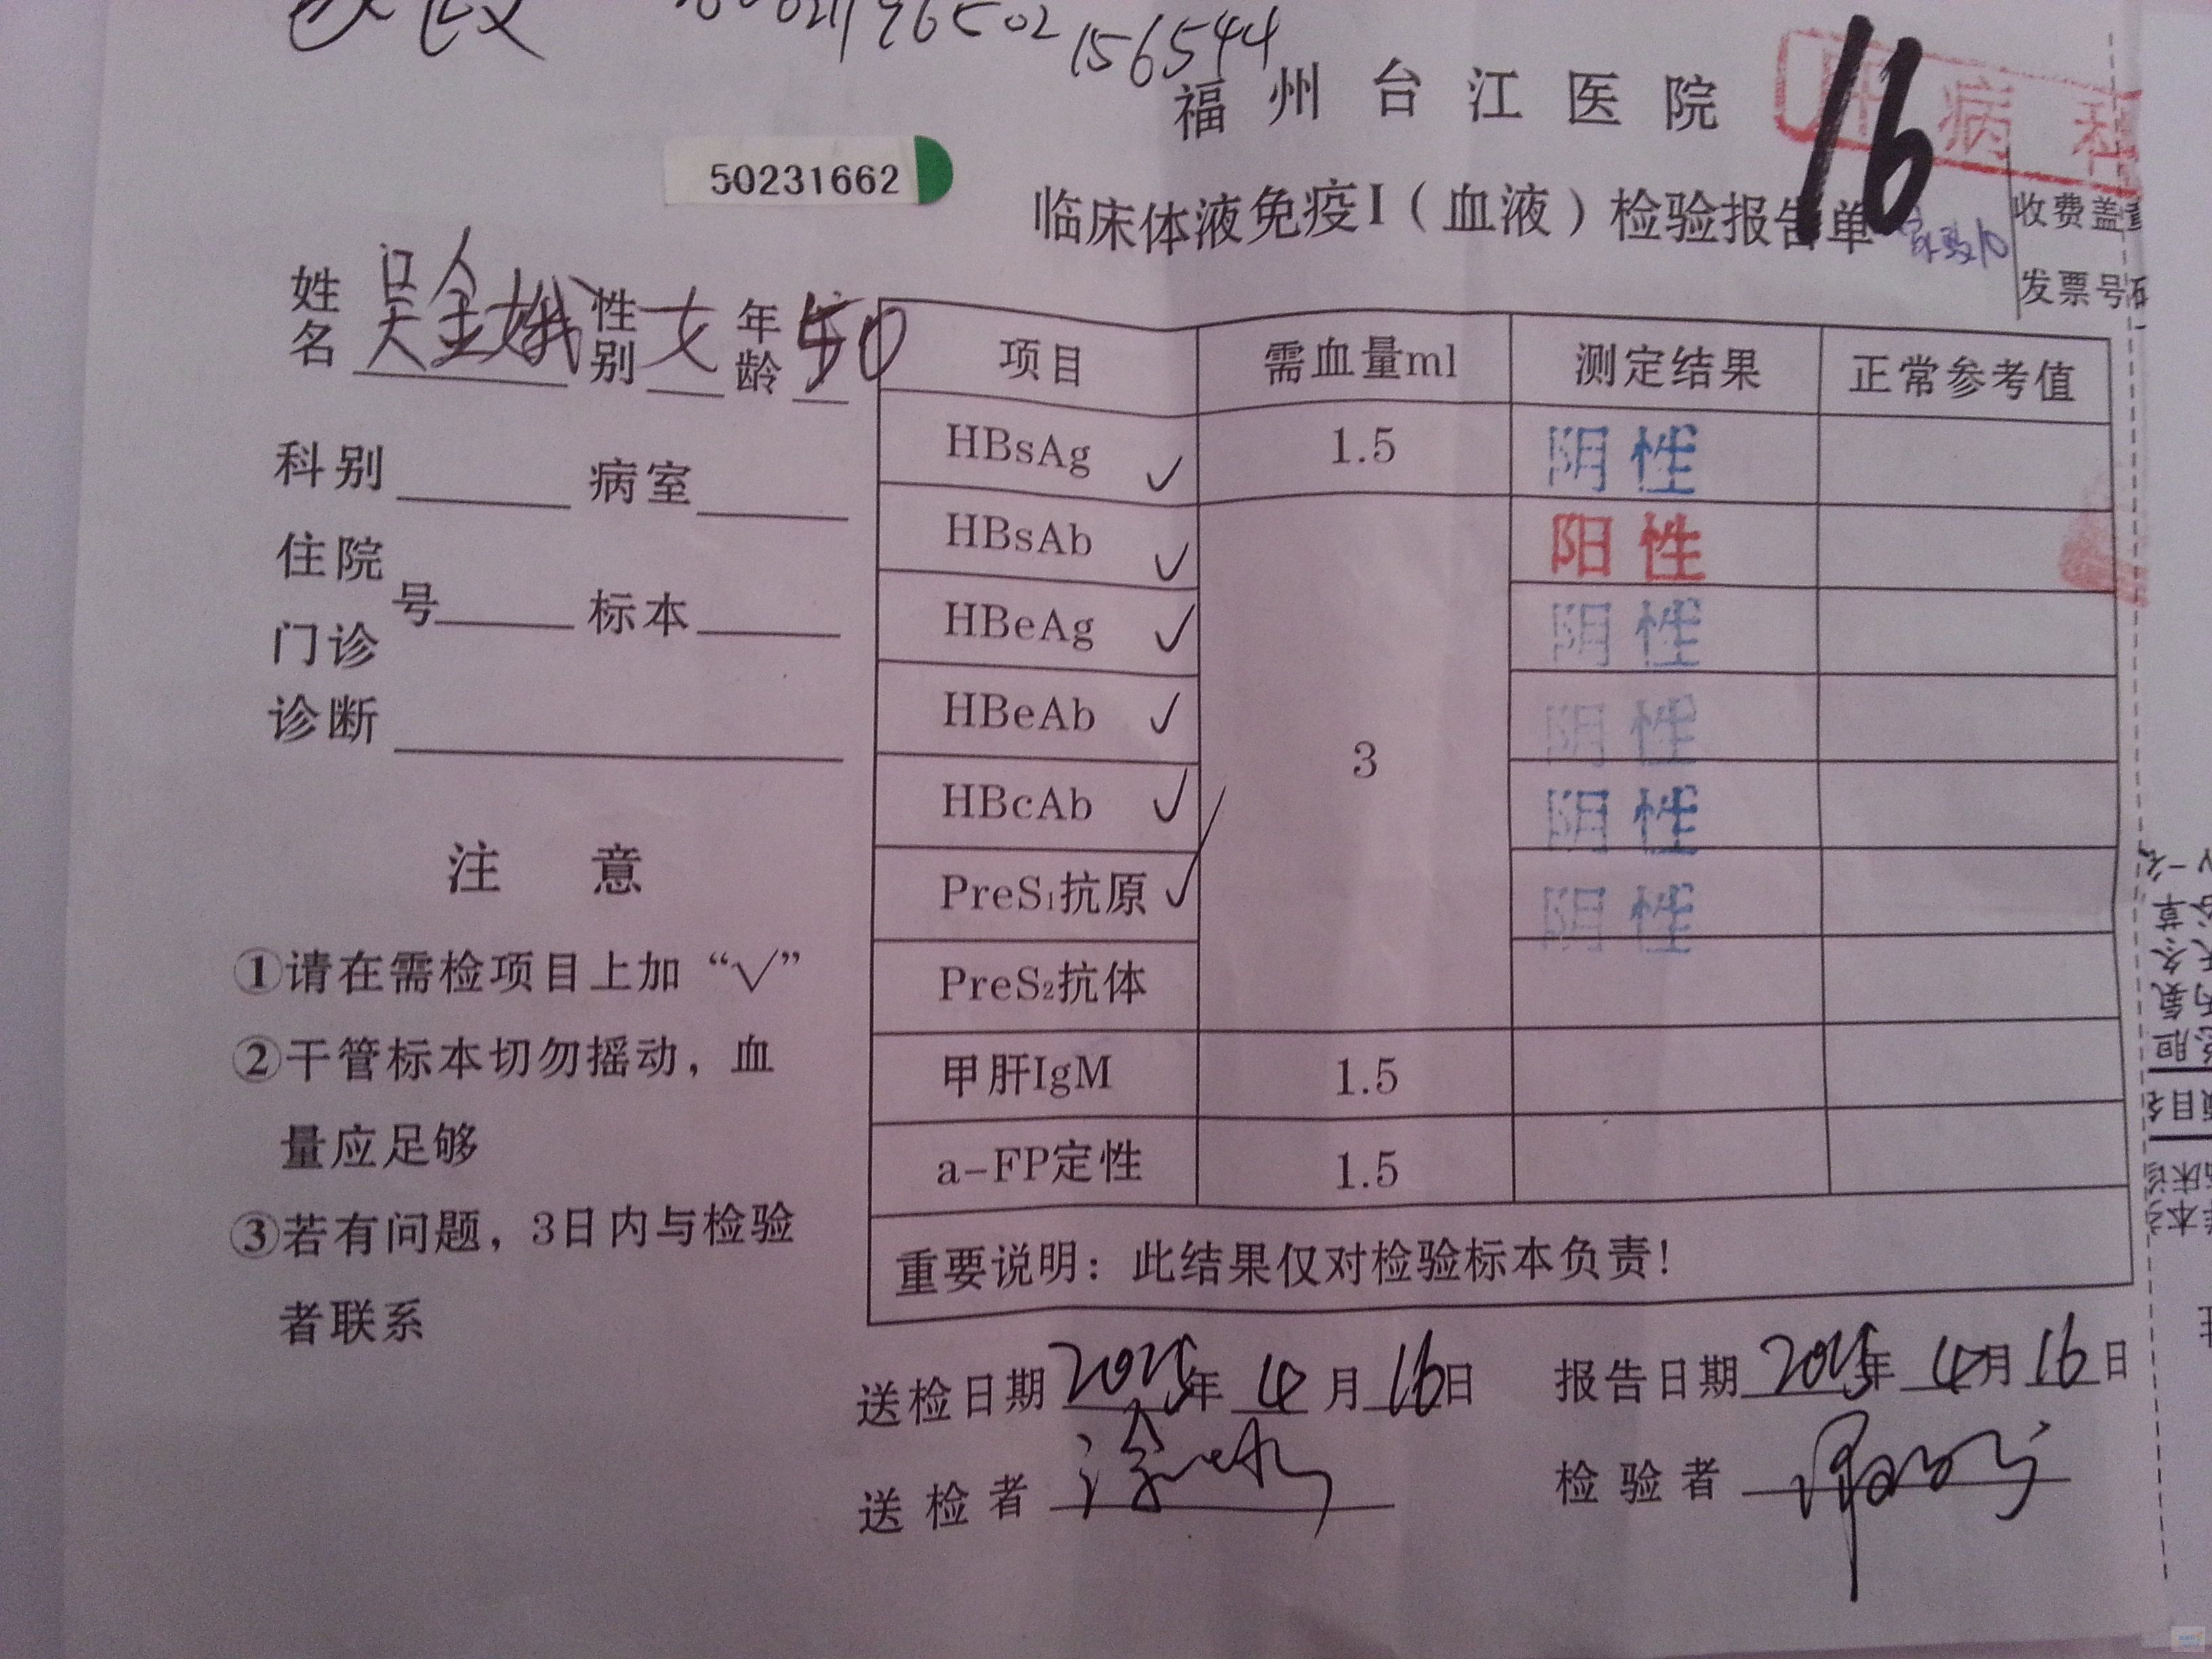 156544
福州台江医院
肝病科
16
50231662
临床体液免疫I(血液)检验报告单
收费盖章
发票号码
姓名 吴金娥 性别 女 年龄 50
科别 病室
住院
门诊
号 标本
诊断
注意
①请在需检项目上加“√”
②干管标本切勿摇动,血
量应足够
③若有问题,3日内与检验
者联系
项目 需血量ml 测定结果 正常参考值
HBsAg √ 1.5 阴性
HBsAb √ 阳性
HBeAg √ 阴性
HBeAb √ 阴性
3
HBcAb √ 阴性
PreS₁抗原 √ 阴性
PreS₂抗体
甲肝IgM 1.5
a-FP定性 1.5
重要说明:此结果仅对检验标本负责!
送检日期 2015年 4月 16日 报告日期 2015年 4月 16日
送检者 检验者